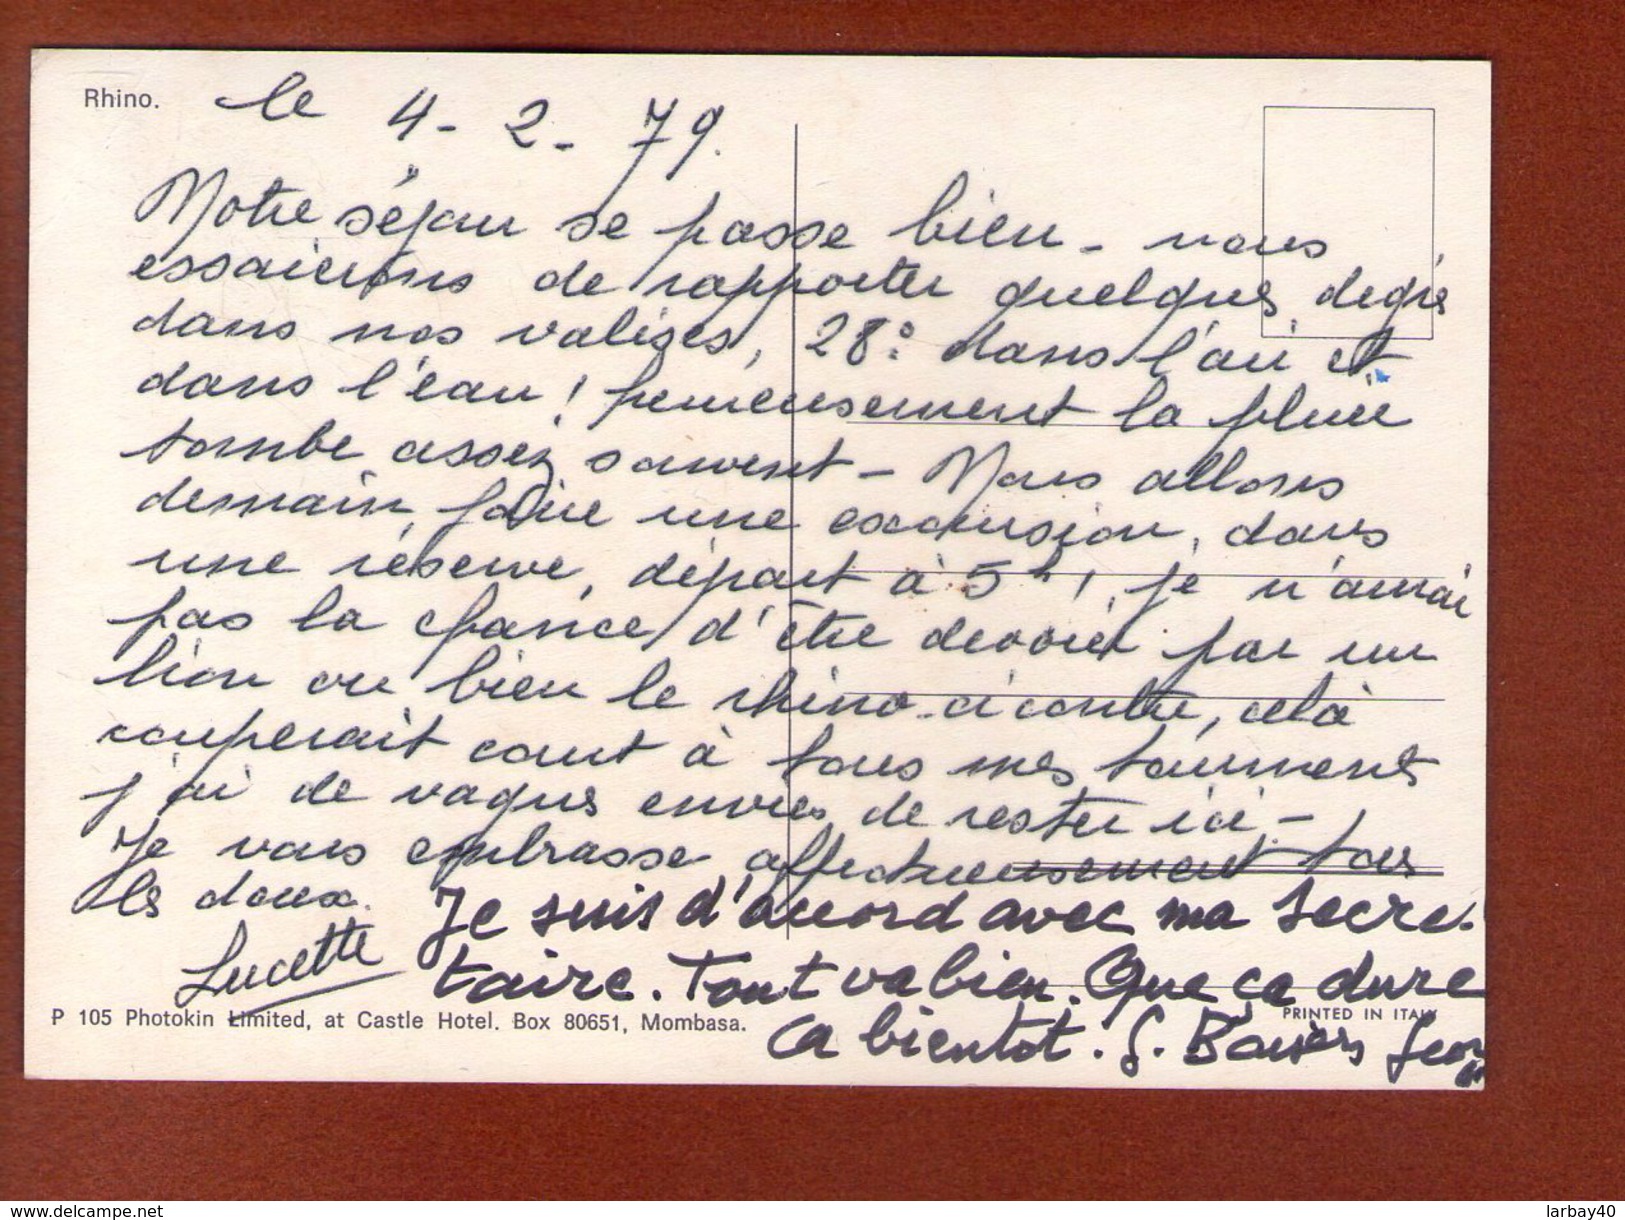 Rhino.
le 4-2-79.
Notre séjour se passe bien - nous
essaierons de rapporter quelques degrés
dans nos valises, 28° dans l'air et
dans l'eau ! la pluie
tombe assez souvent - Nous allons
demain, faire une excursion, dans
une réserve, départ à 5h !, je n'aurai
pas la chance d'être dévorée par un
lion ou bien le rhino ci contre, celà
couperait court à tous mes tourments
j'ai de vagues envies de rester ici -
Je vous embrasse affectueusement tous
les deux.
Lucette
Je suis d'accord avec ma Secré-
taire. Tout va bien. Que ça dure
à bientôt. G. Baisers
P 105 Photokin Limited, at Castle Hotel. Box 80651, Mombasa.
PRINTED IN ITALY
www.delcampe.net
larbay40